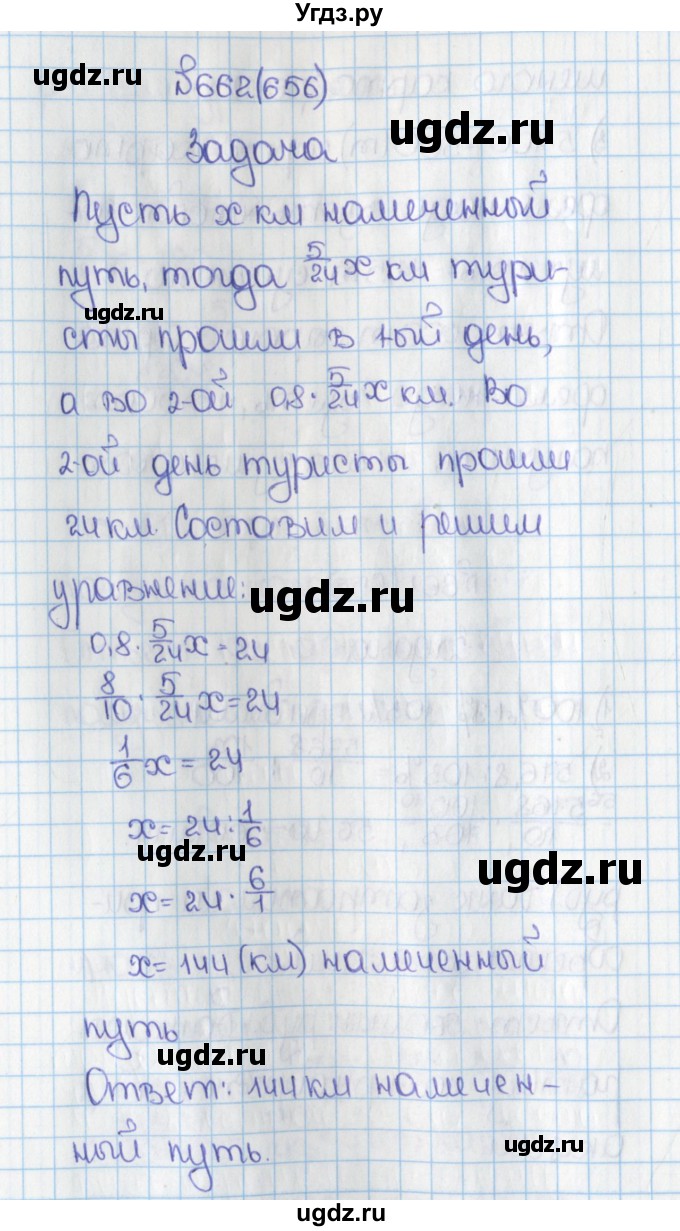 Угдз.ру
ugdz.ru
№662(656)
ugdz.ru
Задача
Пусть x км намеченный
путь, тогда 5/24 x км тури-
ugdz.ru
сты прошли в 1-ый день,
а во 2-ой 0,8 · 5/24 x км. Во
2-ой день туристы прошли
24 км. Составим и решим
уравнение:
ugdz.ru
0,8 · 5/24 x = 24
8/10 · 5/24 x = 24
1/6 x = 24
x = 24 : 1/6
ugdz.ru
ugdz.ru
x = 24 · 6/1
x = 144 (км) намеченный
путь
ugdz.ru
Ответ: 144 км намечен-
ный путь.
ugdz.ru
ugdz.ru